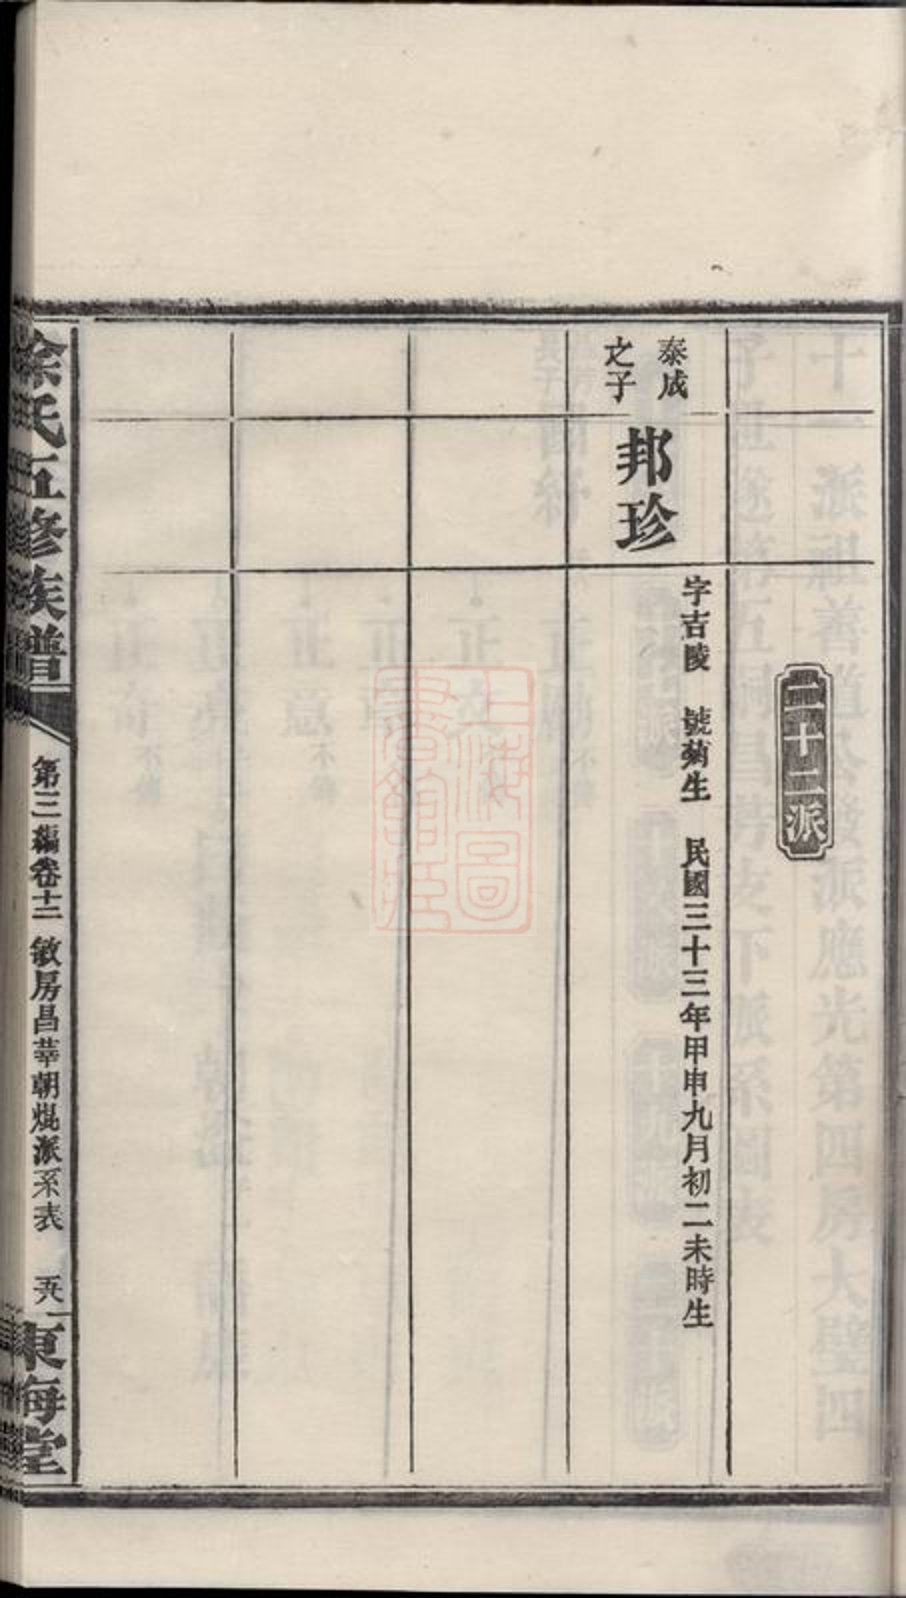 二十二派
泰成
之子
邦珍
字吉陵 號菊生 民國三十三年甲申九月初二未時生
徐氏五修族譜
第三編卷十二 敏房昌華朝焜派系表
東海堂
上海圖
書館藏